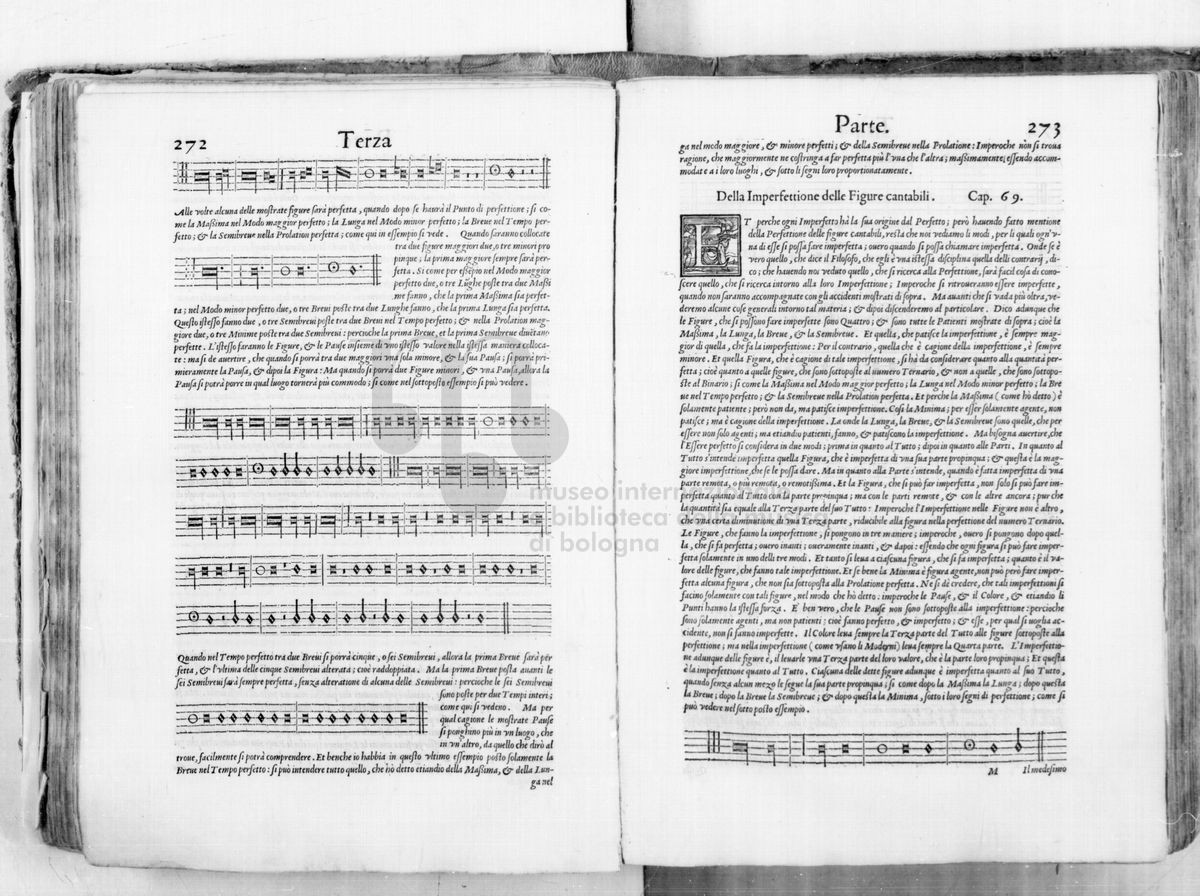 272
Terza
Alle volte alcuna delle mostrate figure sarà perfetta, quando dopo se haurà il Punto di perfettione; si co-
me la Maßima nel Modo maggior perfetto; la Lunga nel Modo minor perfetto; la Breue nel Tempo per-
fetto; & la Semibreue nella Prolation perfetta; come qui in essempio si vede. Quando saranno collocate
tra due figure maggiori due, o tre minori pro
pinque; la prima maggiore sempre sarà per-
fetta. Si come per essẽpio nel Modo maggior
perfetto due, o tre Lũghe poste tra due Maßi
me fanno, che la prima Maßima sia perfet-
ta; nel Modo minor perfetto due, o tre Breui poste tra due Lunghe fanno, che la prima Lunga sia perfetta.
Questo istesso fanno due, o tre Semibreui poste tra due Breui nel Tempo perfetto; & nella Prolation mag-
giore due, o tre Minime poste tra due Semibreui: percioche la prima Breue, et la prima Semibreue diuẽtano
perfette. L'istesso faranno le Figure, & le Pause insieme di vno istesso valore nella istessa maniera colloca-
te: ma si de auertire, che quando si porrà tra due maggiori vna sola minore, & la sua Pausa; si porrà pri-
mieramente la Pausa, & dipoi la Figura: Ma quando si porrà due Figure minori, & vna Pausa, allora la
Pausa si potrà porre in qual luogo tornerà più commodo; si come nel sottoposto essempio si può vedere.
Quando nel Tempo perfetto tra due Breui si porrà cinque, o sei Semibreui, allora la prima Breue sarà per
fetta, & l'vltima delle cinque Semibreui alterata; cioè raddoppiata. Ma la prima Breue posta auanti le
sei Semibreui sarà sempre perfetta, senza alteratione di alcuna delle Semibreui: percioche le sei Semibreui
sono poste per due Tempi interi;
come qui si vedeno. Ma per
qual cagione le mostrate Pause
si ponghino più in vn luogo, che
in vn'altro, da quello che dirò al
troue, facilmente si potrà comprendere. Et benche io habbia in questo vltimo essempio posto solamente la
Breue nel Tempo perfetto: si può intendere tutto quello, che hò detto etiandio della Maßima, & della Lun-
ga nel
Parte.
273
ga nel modo maggiore, & minore perfetti; & della Semibreue nella Prolatione: Imperoche non si troua
ragione, che maggiormente ne costringa a far perfetta più l'vna che l'altra; maßimamente essendo accom-
modate a i loro luoghi, & sotto li segni loro proportionatamente.
Della Imperfettione delle Figure cantabili. Cap. 69.
ET perche ogni Imperfetto hà la sua origine dal Perfetto; però hauendo fatto mentione
della Perfettione delle figure cantabili, resta che noi vediamo li modi, per li quali ogn'v-
na di esse si possa fare imperfetta; ouero quando si possa chiamare imperfetta. Onde se è
vero quello, che dice il Filosofo, che egli è vna istessa disciplina quella delli contrarij, di-
co; che hauendo noi veduto quello, che si ricerca alla Perfettione, sarà facil cosa di cono-
scere quello, che si ricerca intorno alla loro Imperfettione; Imperoche si ritroueranno essere imperfette,
quando non saranno accompagnate con gli accidenti mostrati di sopra. Ma auanti che si vada più oltra, ve-
deremo alcune cose generali intorno tal materia; & dipoi discenderemo al particolare. Dico adunque che
le Figure, che si possono fare imperfette sono Quattro; & sono tutte le Patienti mostrate di sopra; cioè la
Maßima, la Lunga, la Breue, & la Semibreue. Et quella, che patisce la imperfettione, è sempre mag-
gior di quella, che fa la imperfettione: Per il contrario, quella che è cagione della imperfettione, è sempre
minore. Et quella Figura, che è cagione di tale imperfettione, si hà da considerare quanto alla quantità per-
fetta; cioè quanto a quelle figure, che sono sottoposte al numero Ternario, & non a quelle, che sono sottopo-
ste al Binario; si come la Maßima nel Modo maggior perfetto; la Lunga nel Modo minor perfetto; la Bre
ue nel Tempo perfetto; & la Semibreue nella Prolation perfetta. Et perche la Maßima (come hò detto) è
solamente patiente; però non da, ma patisce imperfettione. Cosi la Minima; per esser solamente agente, non
patisce; ma è cagione della imperfettione. La onde la Lunga, la Breue, & la Semibreue sono quelle, che per
essere non solo agenti; ma etiandio patienti, fanno, & patiscono la imperfettione. Ma bisogna auertire, che
l'Essere perfetto si considera in due modi; prima in quanto al Tutto; dipoi in quanto alle Parti. In quanto al
Tutto s'intende imperfetta quella Figura, che è imperfetta di vna sua parte propinqua; & questa è la mag-
giore imperfettione, che se le possa dare. Ma in quanto alla Parte s'intende, quando è fatta imperfetta di vna
parte remota, o più remota, o remotißima. Et la Figura, che si può far imperfetta, non solo si può fare im-
perfetta quanto al Tutto con la parte propinqua; ma con le parti remote, & con le altre ancora; pur che
la quantità sia equale alla Terza parte del suo Tutto: Imperoche l'Imperfettione nelle Figure non è altro,
che vna certa diminutione di vna Terza parte, riducibile alla figura nella perfettione del numero Ternario.
Le Figure, che fanno la imperfettione, si pongono in tre maniere; imperoche, ouero si pongono dopo quel-
la, che si fa perfetta; ouero inanti; oueramente inanti, & dapoi: essendo che ogni figura si può fare imper-
fetta solamente in vno delli tre modi. Et tanto si leua a ciascuna figura, che si fa imperfetta; quanto è il va-
lore delle figure, che fanno tale imperfettione. Et se bene la Minima è figura agente, non può però fare imper-
fetta alcuna figura, che non sia sottoposta alla Prolatione perfetta. Ne si dè credere, che tali imperfettioni si
facino solamente con tali figure, nel modo che hò detto: imperoche le Pause, & il Colore, & etiandio li
Punti hanno la istessa forza. E ben vero, che le Pause non sono sottoposte alla imperfettione: percioche
sono solamente agenti, ma non patienti: cioè fanno perfetto, & imperfetto; & esse, per qual si uoglia ac-
cidente, non si fanno imperfette. Il Colore leua sempre la Terza parte del Tutto alle figure sottoposte alla
perfettione; ma nella imperfettione (come vsano li Moderni) leua sempre la Quarta parte. L'Imperfettio-
ne adunque delle figure è, il leuarle vna Terza parte del loro valore, che è la parte loro propinqua; Et questa
è la imperfettione quanto al Tutto. Ciascuna delle dette figure adunque è imperfetta quanto al suo Tutto,
quando senza alcun mezo le segue la sua parte propinqua; si come dopo la Maßima la Lunga; dopo questa
la Breue; dopo la Breue la Semibreue; & dopo questa la Minima, sotto i loro segni di perfettione; come si
può vedere nel sotto posto essempio.
M
Il medesimo
museo internazionale
e biblioteca della musica
di bologna